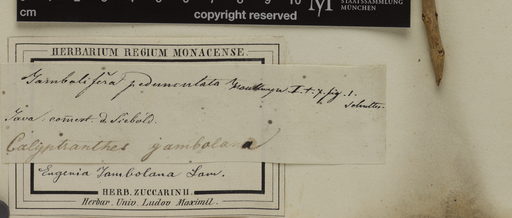 cm
copyright reserved
STAATSSAMMLUNG
MÜNCHEN
HERBARIUM REGIUM MONACENSE.
Jambolifera pedunculata Houttuyn I. t. 7. fig. 1.
Java. comert. d. Siebold.
Calyptranthes jambolana
Eugenia Jambolana Lam.
HERB. ZUCCARINII.
Herbar. Univ. Ludov. Maximil.